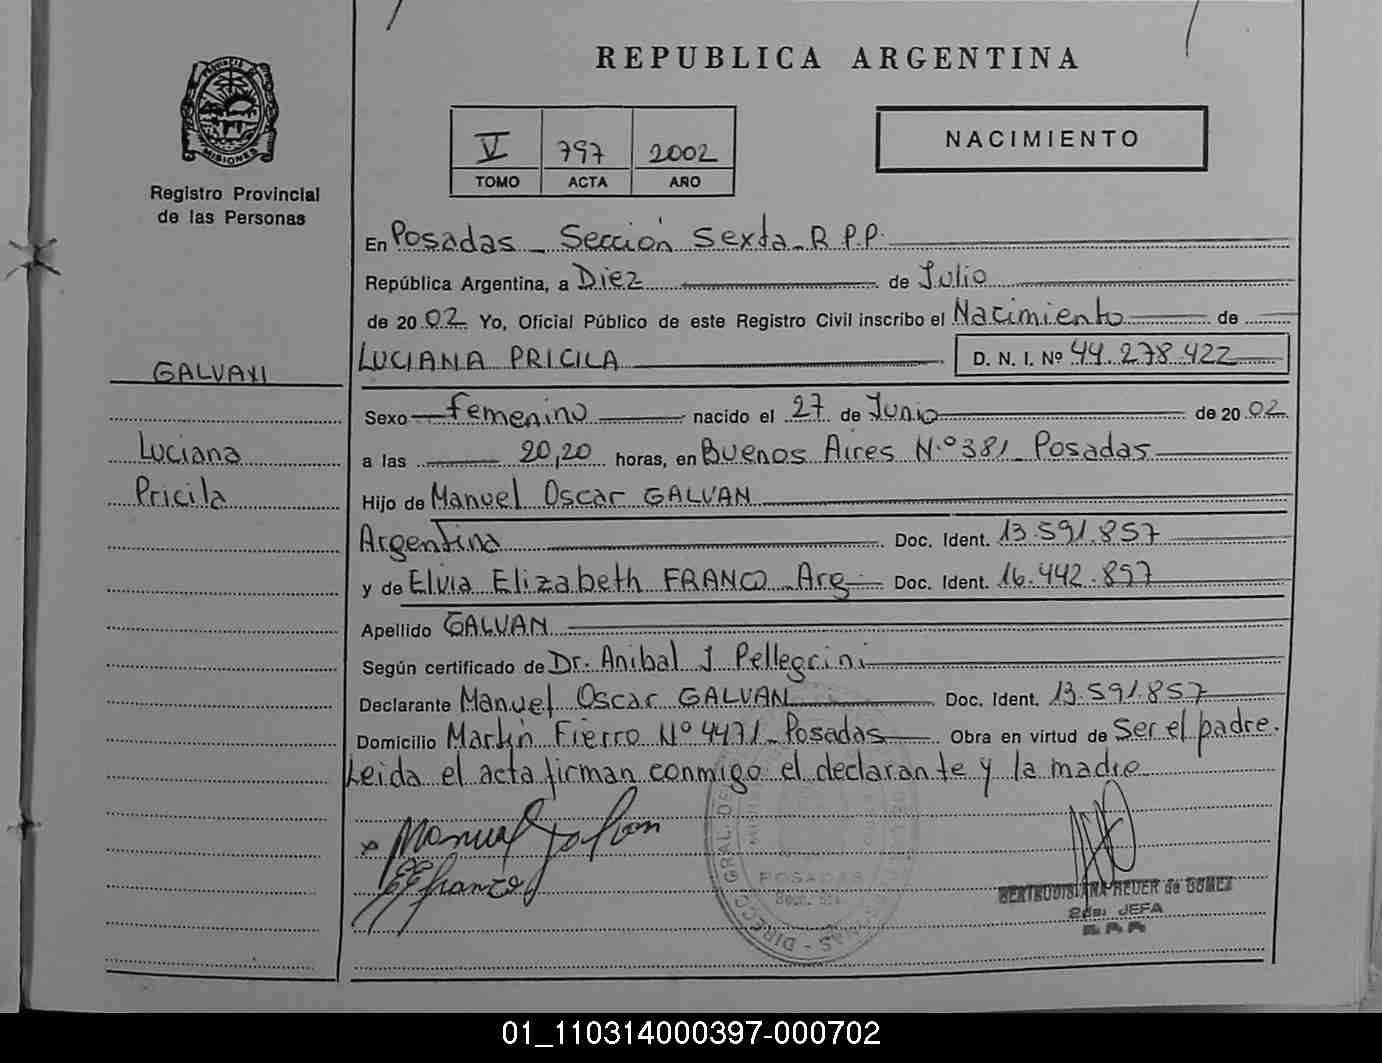 REPUBLICA ARGENTINA
PROVINCIA DE
MISIONES
Registro Provincial
de las Personas
V 797 2002
TOMO ACTA AÑO
NACIMIENTO
En Posadas _ Sección Sexta _ R.P.P.
República Argentina, a Diez de Julio
de 2002 Yo, Oficial Público de este Registro Civil inscribo el Nacimiento de
LUCIANA PRICILA D. N. I. Nº 44.278.422
GALVAN
Sexo Femenino nacido el 27 de Junio de 2002
Luciana
a las 20,20 horas, en Buenos Aires N.º 381 _ Posadas
Pricila
Hijo de Manuel Oscar GALVAN
Argentina Doc. Ident. 13.591.857
y de Elvia Elizabeth FRANCO _ Arg Doc. Ident. 16.442.897
Apellido GALVAN
Según certificado de Dr. Anibal J Pellegrini
Declarante Manuel Oscar GALVAN Doc. Ident. 13.591.857
Domicilio Martín Fierro Nº 4471 _ Posadas Obra en virtud de Ser el padre.
Leida el acta firman conmigo el declarante y la madre
x Manuel Galvan
EFranco
POSADAS
REUER de GOMEZ
JEFA
01_110314000397-000702